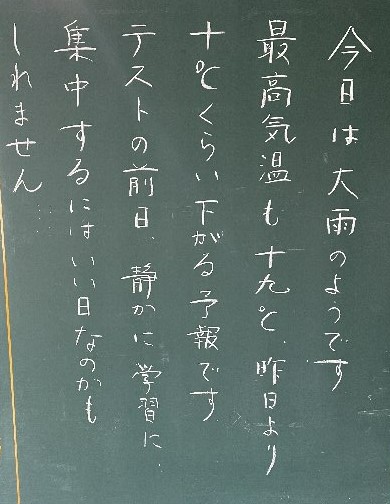 今日は大雨のようです
最高気温も十九℃ 昨日より
十℃くらい下がる予報です
テストの前日、静かに学習に
集中するにはいい日なのかも
しれません